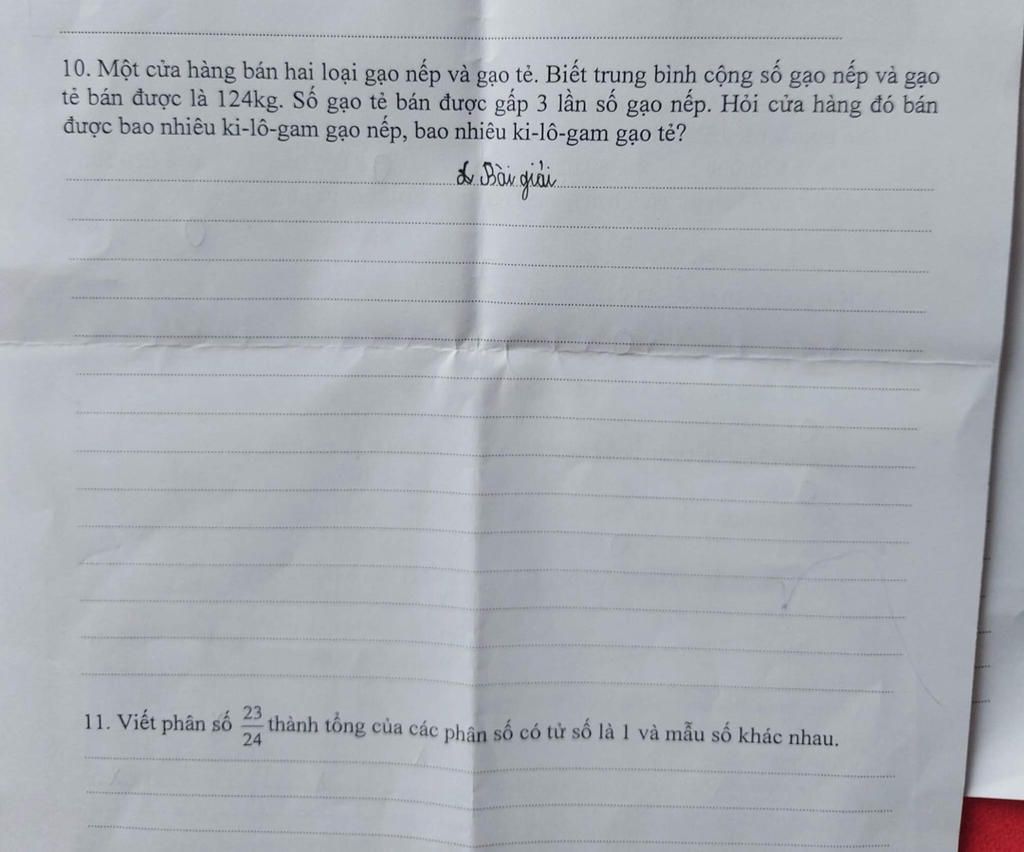 10. Một cửa hàng bán hai loại gạo nếp và gạo tẻ. Biết trung bình cộng số gạo nếp và gạo
tẻ bán được là 124kg. Số gạo tẻ bán được gấp 3 lần số gạo nếp. Hỏi cửa hàng đó bán
được bao nhiêu ki-lô-gam gạo nếp, bao nhiêu ki-lô-gam gạo tẻ?
Bài giải
11. Viết phân số 23/24 thành tổng của các phân số có tử số là 1 và mẫu số khác nhau.